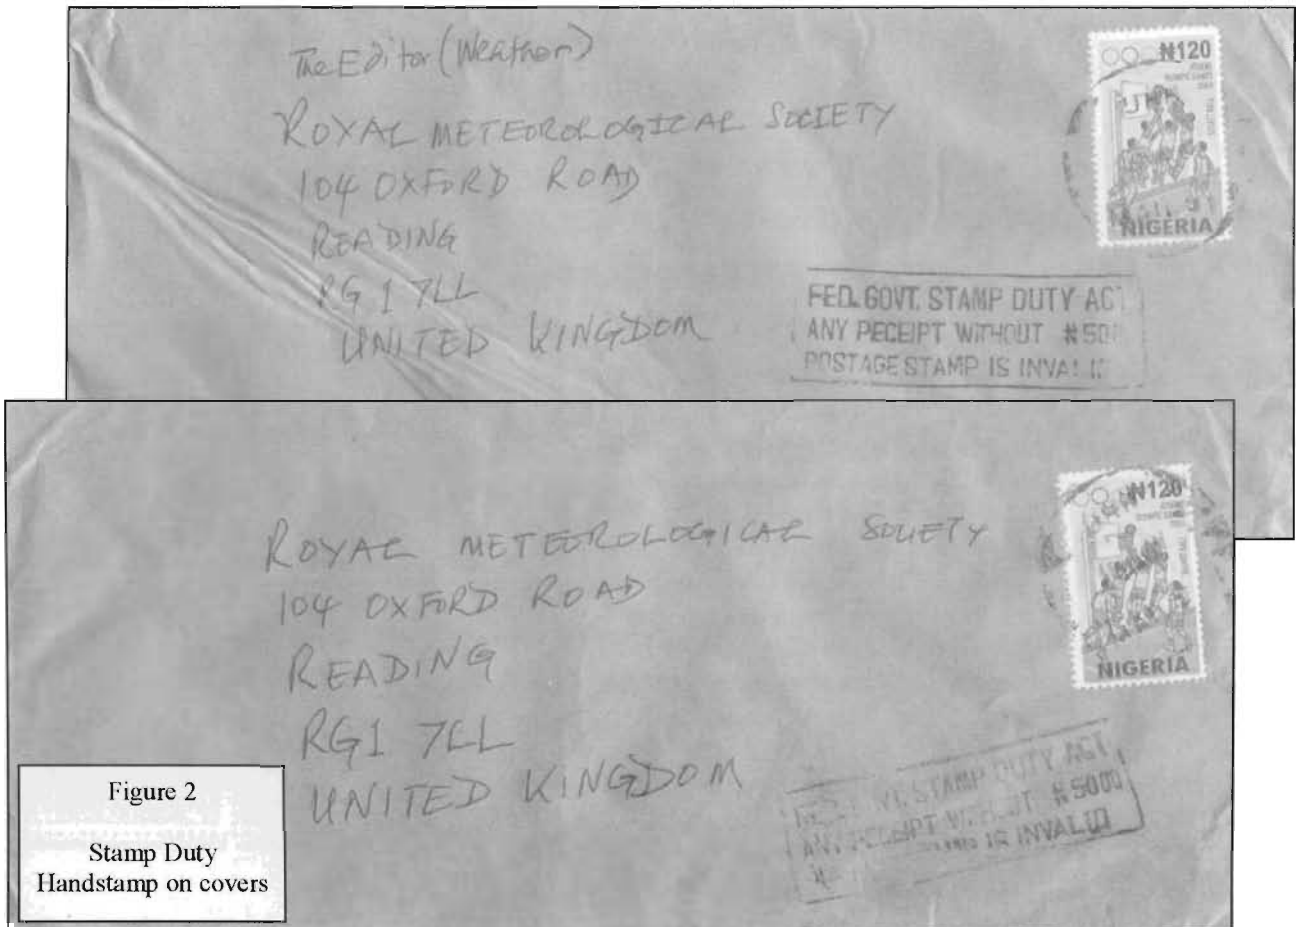 The Editor (Weather)
ROYAL METEOROLOGICAL SOCIETY
104 OXFORD ROAD
READING
RG1 7LL
UNITED KINGDOM
₦120
NIGERIA
FED. GOVT. STAMP DUTY ACT
ANY RECEIPT WITHOUT ₦500
POSTAGE STAMP IS INVALID
ROYAL METEOROLOGICAL SOCIETY
104 OXFORD ROAD
READING
RG1 7LL
UNITED KINGDOM
₦120
NIGERIA
STAMP DUTY ACT
ANY RECEIPT WITHOUT ₦5000
IS INVALID
Figure 2
Stamp Duty
Handstamp on covers